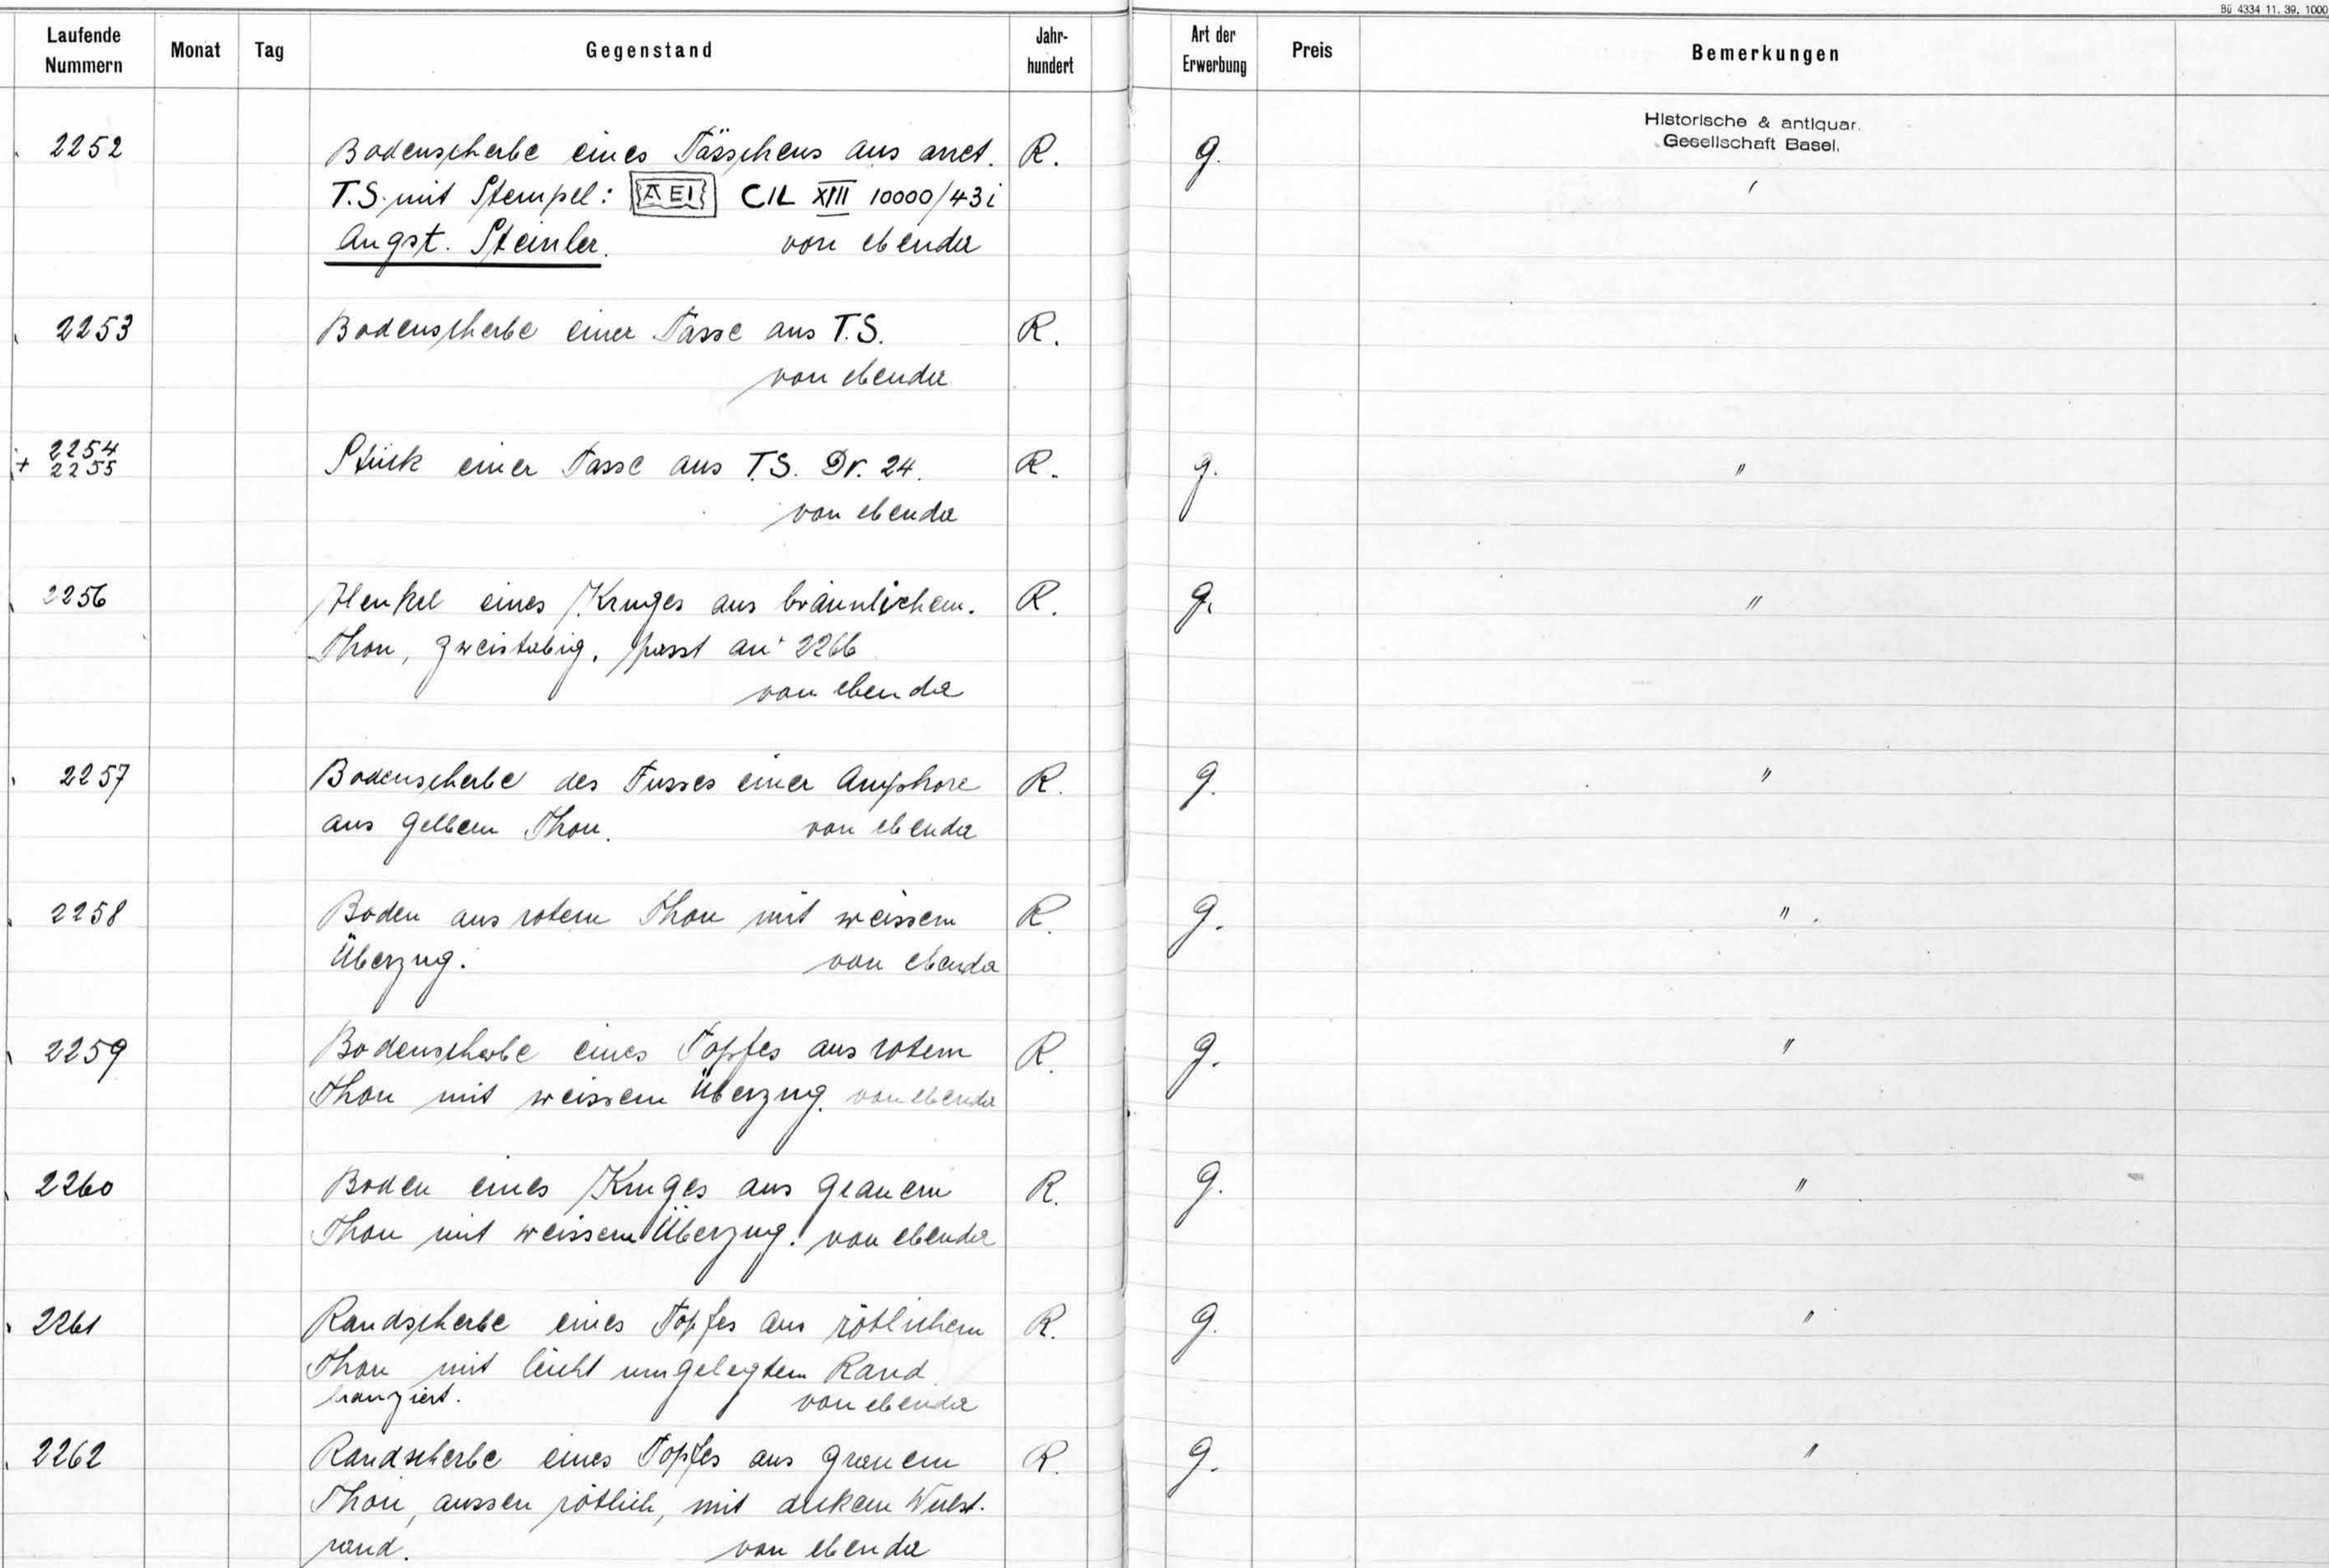 Bü 4334 11. 39. 1000
Laufende Nummern Monat Tag Gegenstand Jahr-hundert Art der Erwerbung Preis Bemerkungen
Historische & antiquar.
Gesellschaft Basel.
2252 Bodenscherbe eines Tässchens aus arret. R. g.
T.S. mit Stempel: AEI CIL XIII 10000/43i
Augst. Steinler. von ebenda
2253 Bodenscherbe einer Tasse aus T.S. R.
von ebenda
2254
+ 2255 Stück einer Tasse aus T.S. Dr. 24. R. g. "
von ebenda
2256 Henkel eines Kruges aus bräunlichem. R. g. "
Thon, zweistabig, passt an 2266
von ebenda
2257 Bodenscherbe des Fusses einer Amphore R. g. "
aus gelbem Thon. von ebenda
2258 Boden aus rotem Thon mit weissem R. g. "
Überzug. von ebenda
2259 Bodenscherbe eines Topfes aus rotem R. g. "
Thon mit weissem Überzug. von ebenda
2260 Boden eines Kruges aus grauem R. g. "
Thon mit weissem Überzug. von ebenda
2261 Randscherbe eines Topfes aus rötlichem R. g. "
Thon mit leicht umgelegtem Rand
von ebenda
2262 Randscherbe eines Topfes aus grauem R. g. "
Thon, aussen rötlich, mit dickem Wulst.
rand. von ebenda